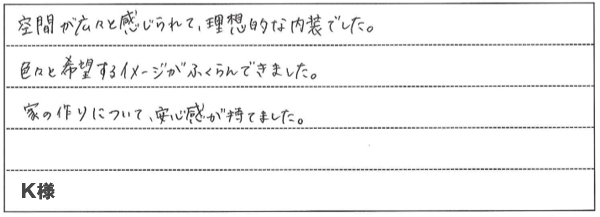 空間が広々と感じられて、理想的な内装でした。
色々と希望するイメージがふくらんできました。
家の作りについて、安心感が持てました。
K様